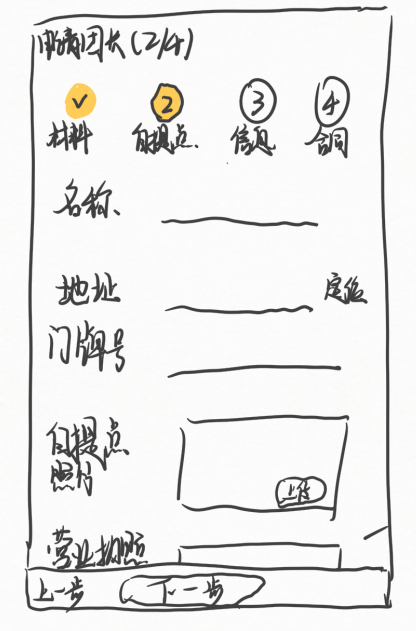 申请团长(2/4)
✓ 2 3 4
材料 自提点 信息 合同
名称
地址 定位
门牌号
自提点
照片
上传
营业执照
上一步 下一步